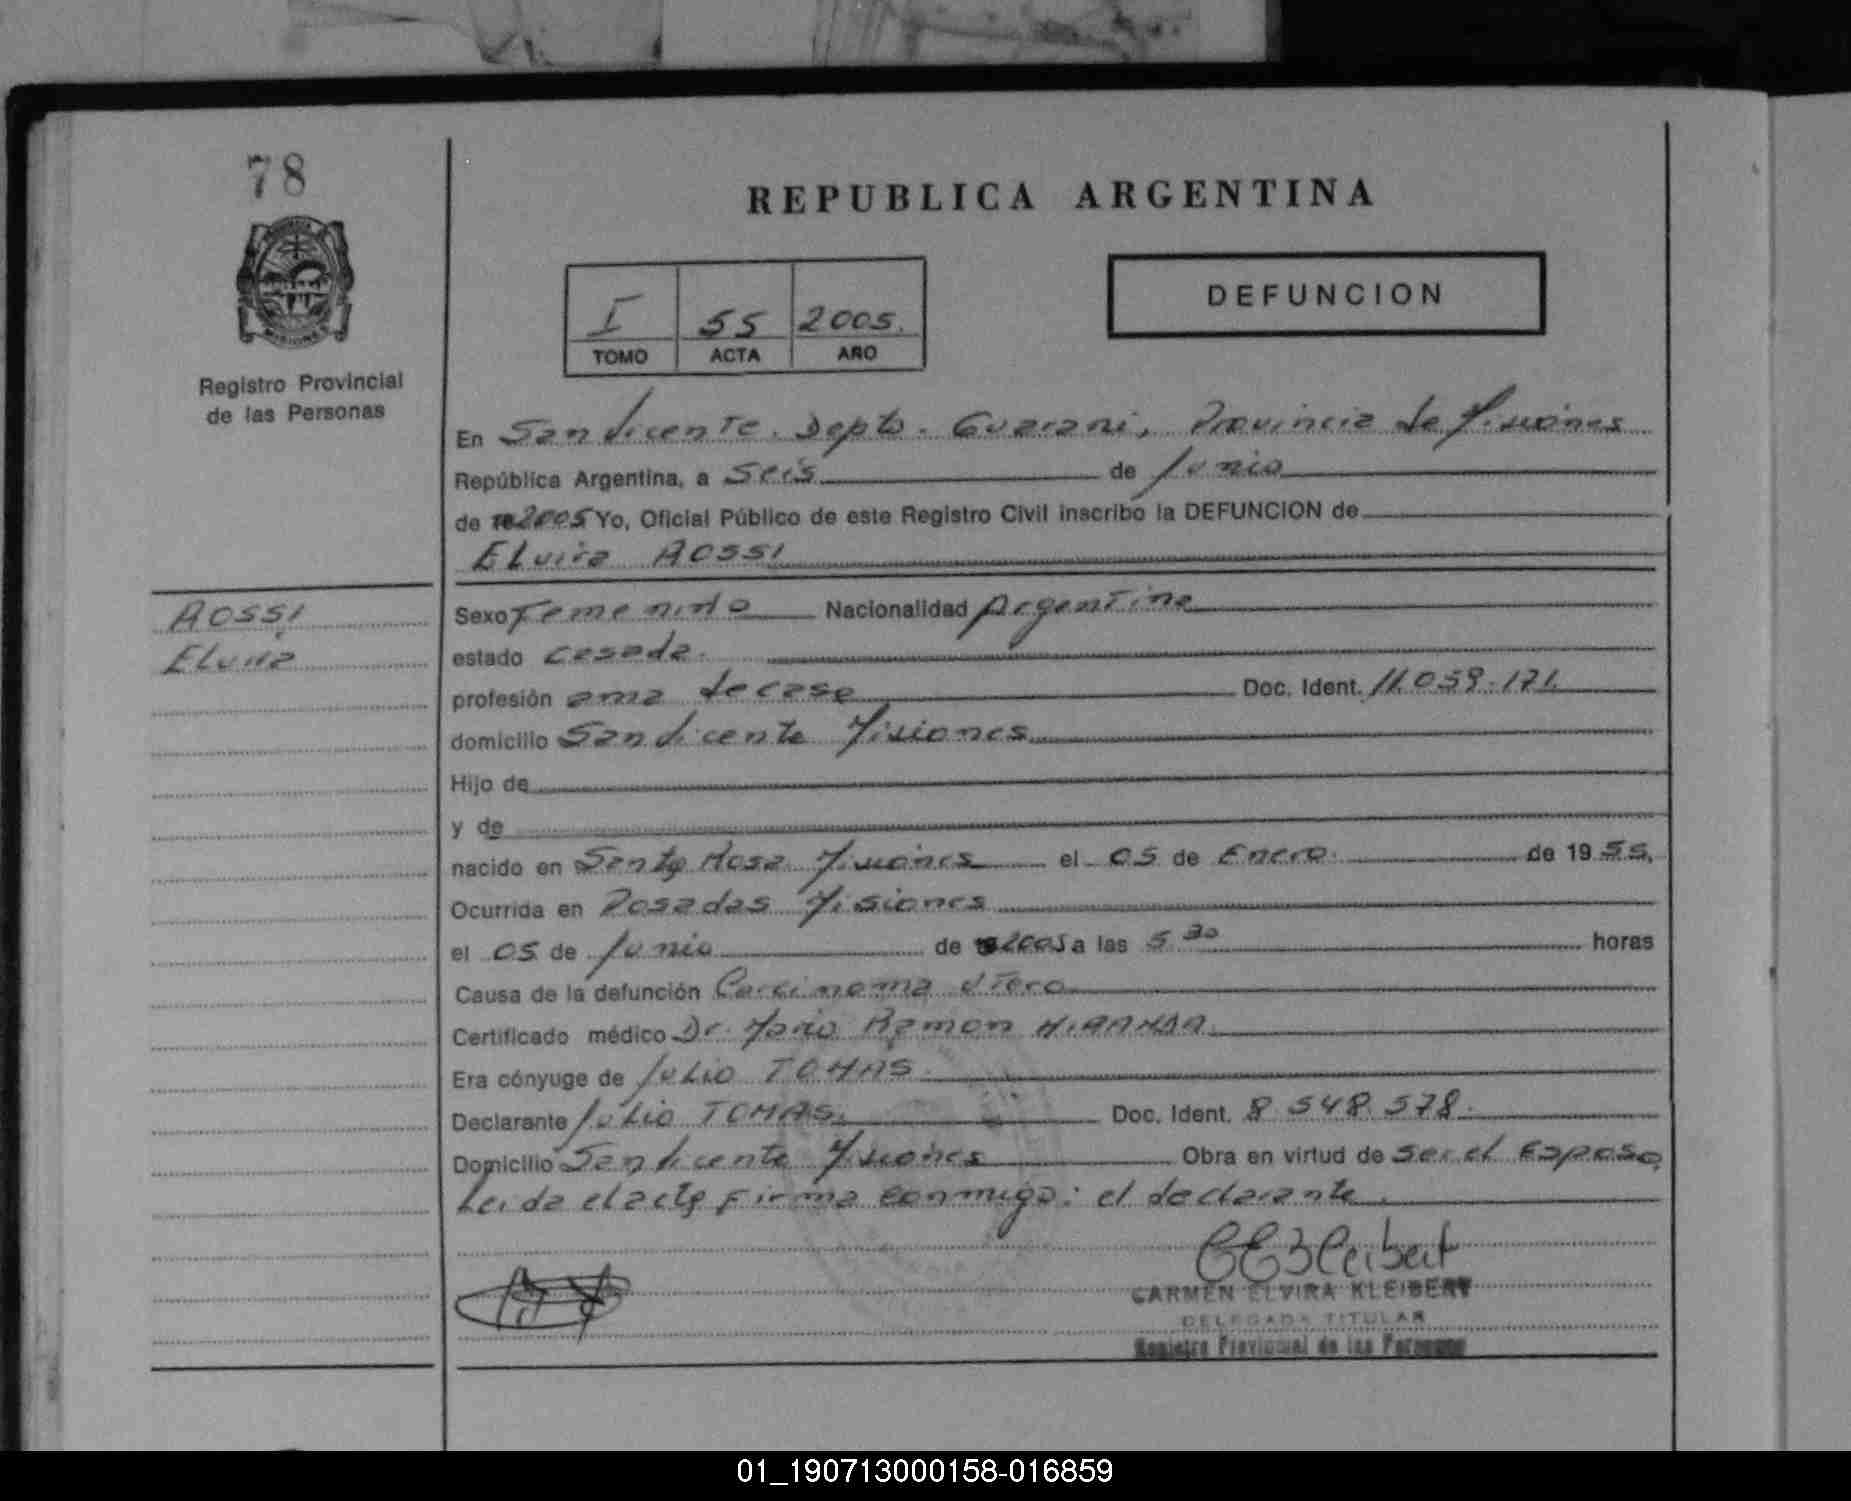 78
REPUBLICA ARGENTINA
DEFUNCION
I 55 2005.
TOMO ACTA AÑO
MISIONES
Registro Provincial
de las Personas
En San Vicente. Depto. Guarani, Provincia de Misiones
República Argentina, a Seis de Junio
de 2005 Yo, Oficial Público de este Registro Civil inscribo la DEFUNCION de
ELvira ROSSI
ROSSI
ELvira
Sexo Femenino Nacionalidad Argentina
estado casada.
profesión ama de casa Doc. Ident. 11.059.171.
domicilio San Vicente Misiones
Hijo de
y de
nacido en Santa Rosa Misiones el 05 de Enero. de 1955.
Ocurrida en Posadas Misiones
el 05 de Junio de 2005 a las 5 30 horas
Causa de la defunción Carcinoma Utero
Certificado médico Dr. Mario Ramon MIRANDA.
Era cónyuge de Julio TOMAS.
Declarante Julio TOMAS. Doc. Ident. 8.548.578.
Domicilio San Vicente Misiones Obra en virtud de ser el Esposo
Leida el acta firma conmigo: el declarante.
CEKleibert
CARMEN ELVIRA KLEIBERT
DELEGADA TITULAR
Registro Provincial de las Personas
01_190713000158-016859